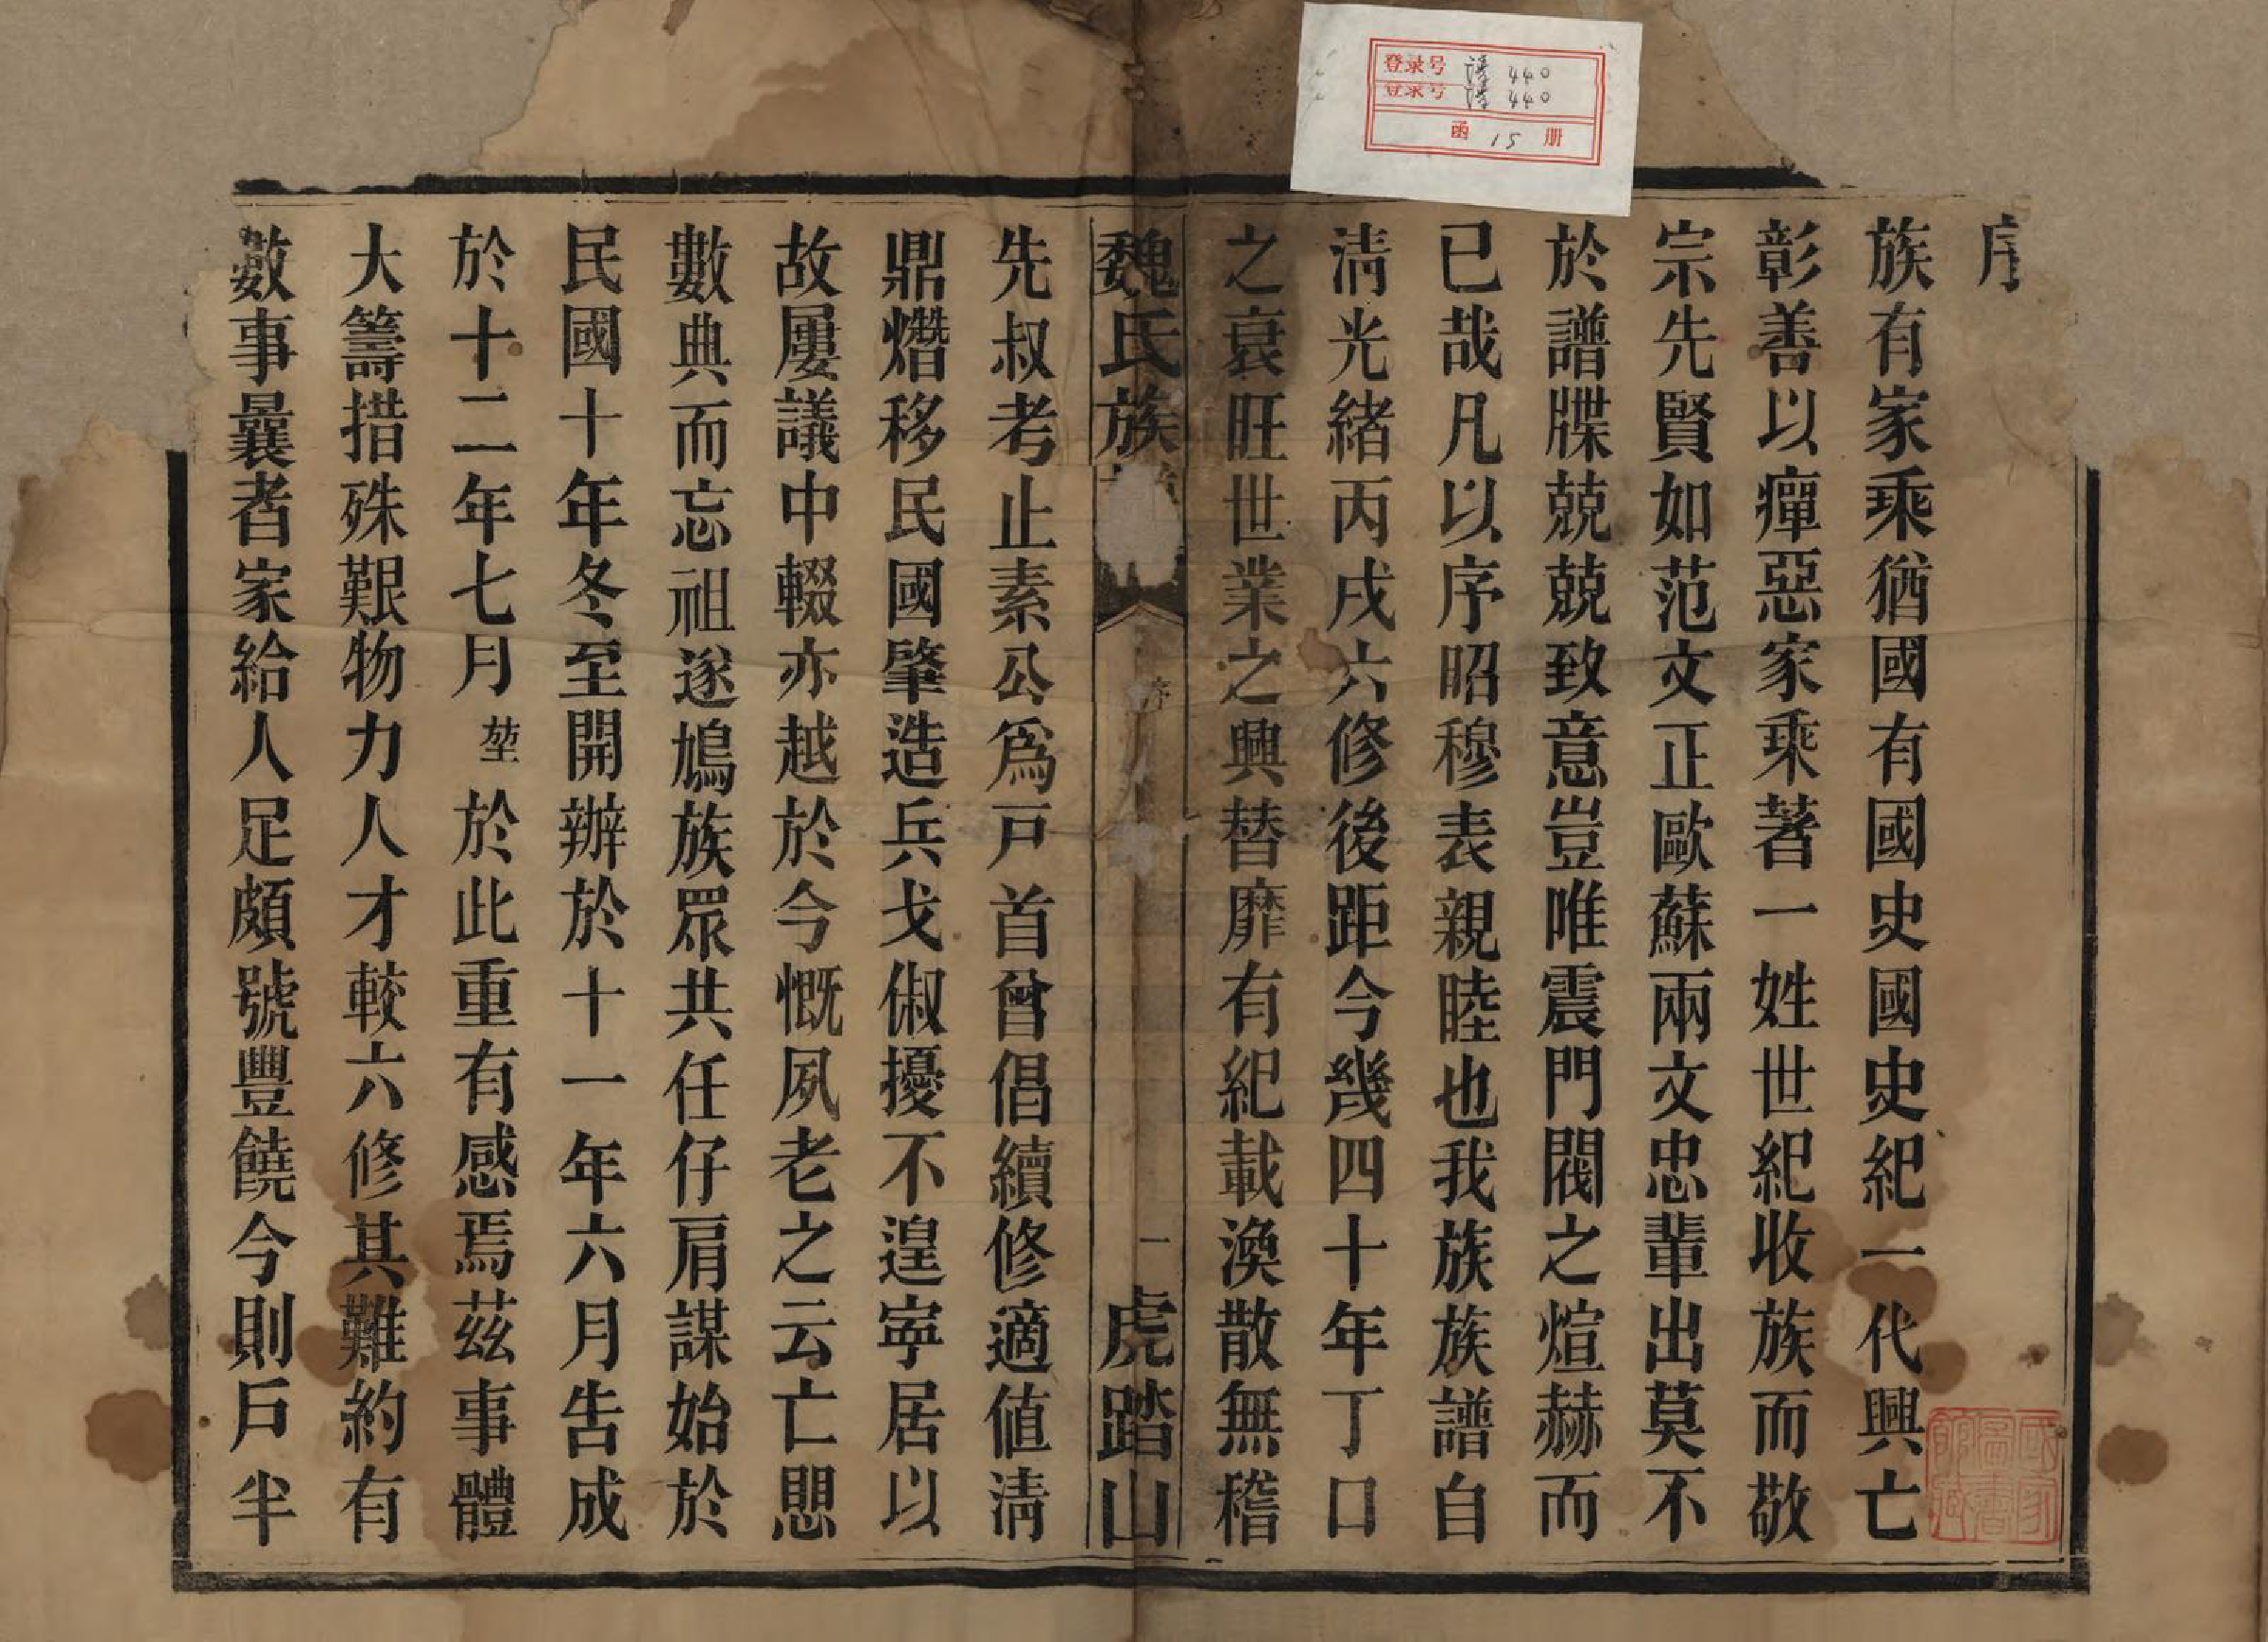 序
族有家乘猶國有國史國史紀一代興亡
彰善以癉惡家乘著一姓世紀收族而敬
宗先賢如范文正歐蘇兩文忠輩出莫不
於譜牒兢兢致意豈唯震門閥之煊赫而
已哉凡以序昭穆表親睦也我族族譜自
淸光緒丙戌六修後距今幾四十年丁口
之衰旺世業之興替靡有紀載渙散無稽
魏氏族
序
一
虎踏山
先叔考止素公爲戸首曾倡續修適値淸
鼎熸移民國肇造兵戈俶擾不遑寕居以
故屢議中輟亦越於今慨夙老之云亡思
數典而忘祖遂鳩族眾共任仔肩謀始於
民國十年冬至開辦於十一年六月告成
於十二年七月堃於此重有感焉茲事體
大籌措殊艱物力人才較六修其難約有
數事曩者家給人足頗號豐饒今則戸半
登录号 谱 440
登录号 谱 440
函 15 册
國家圖書館藏